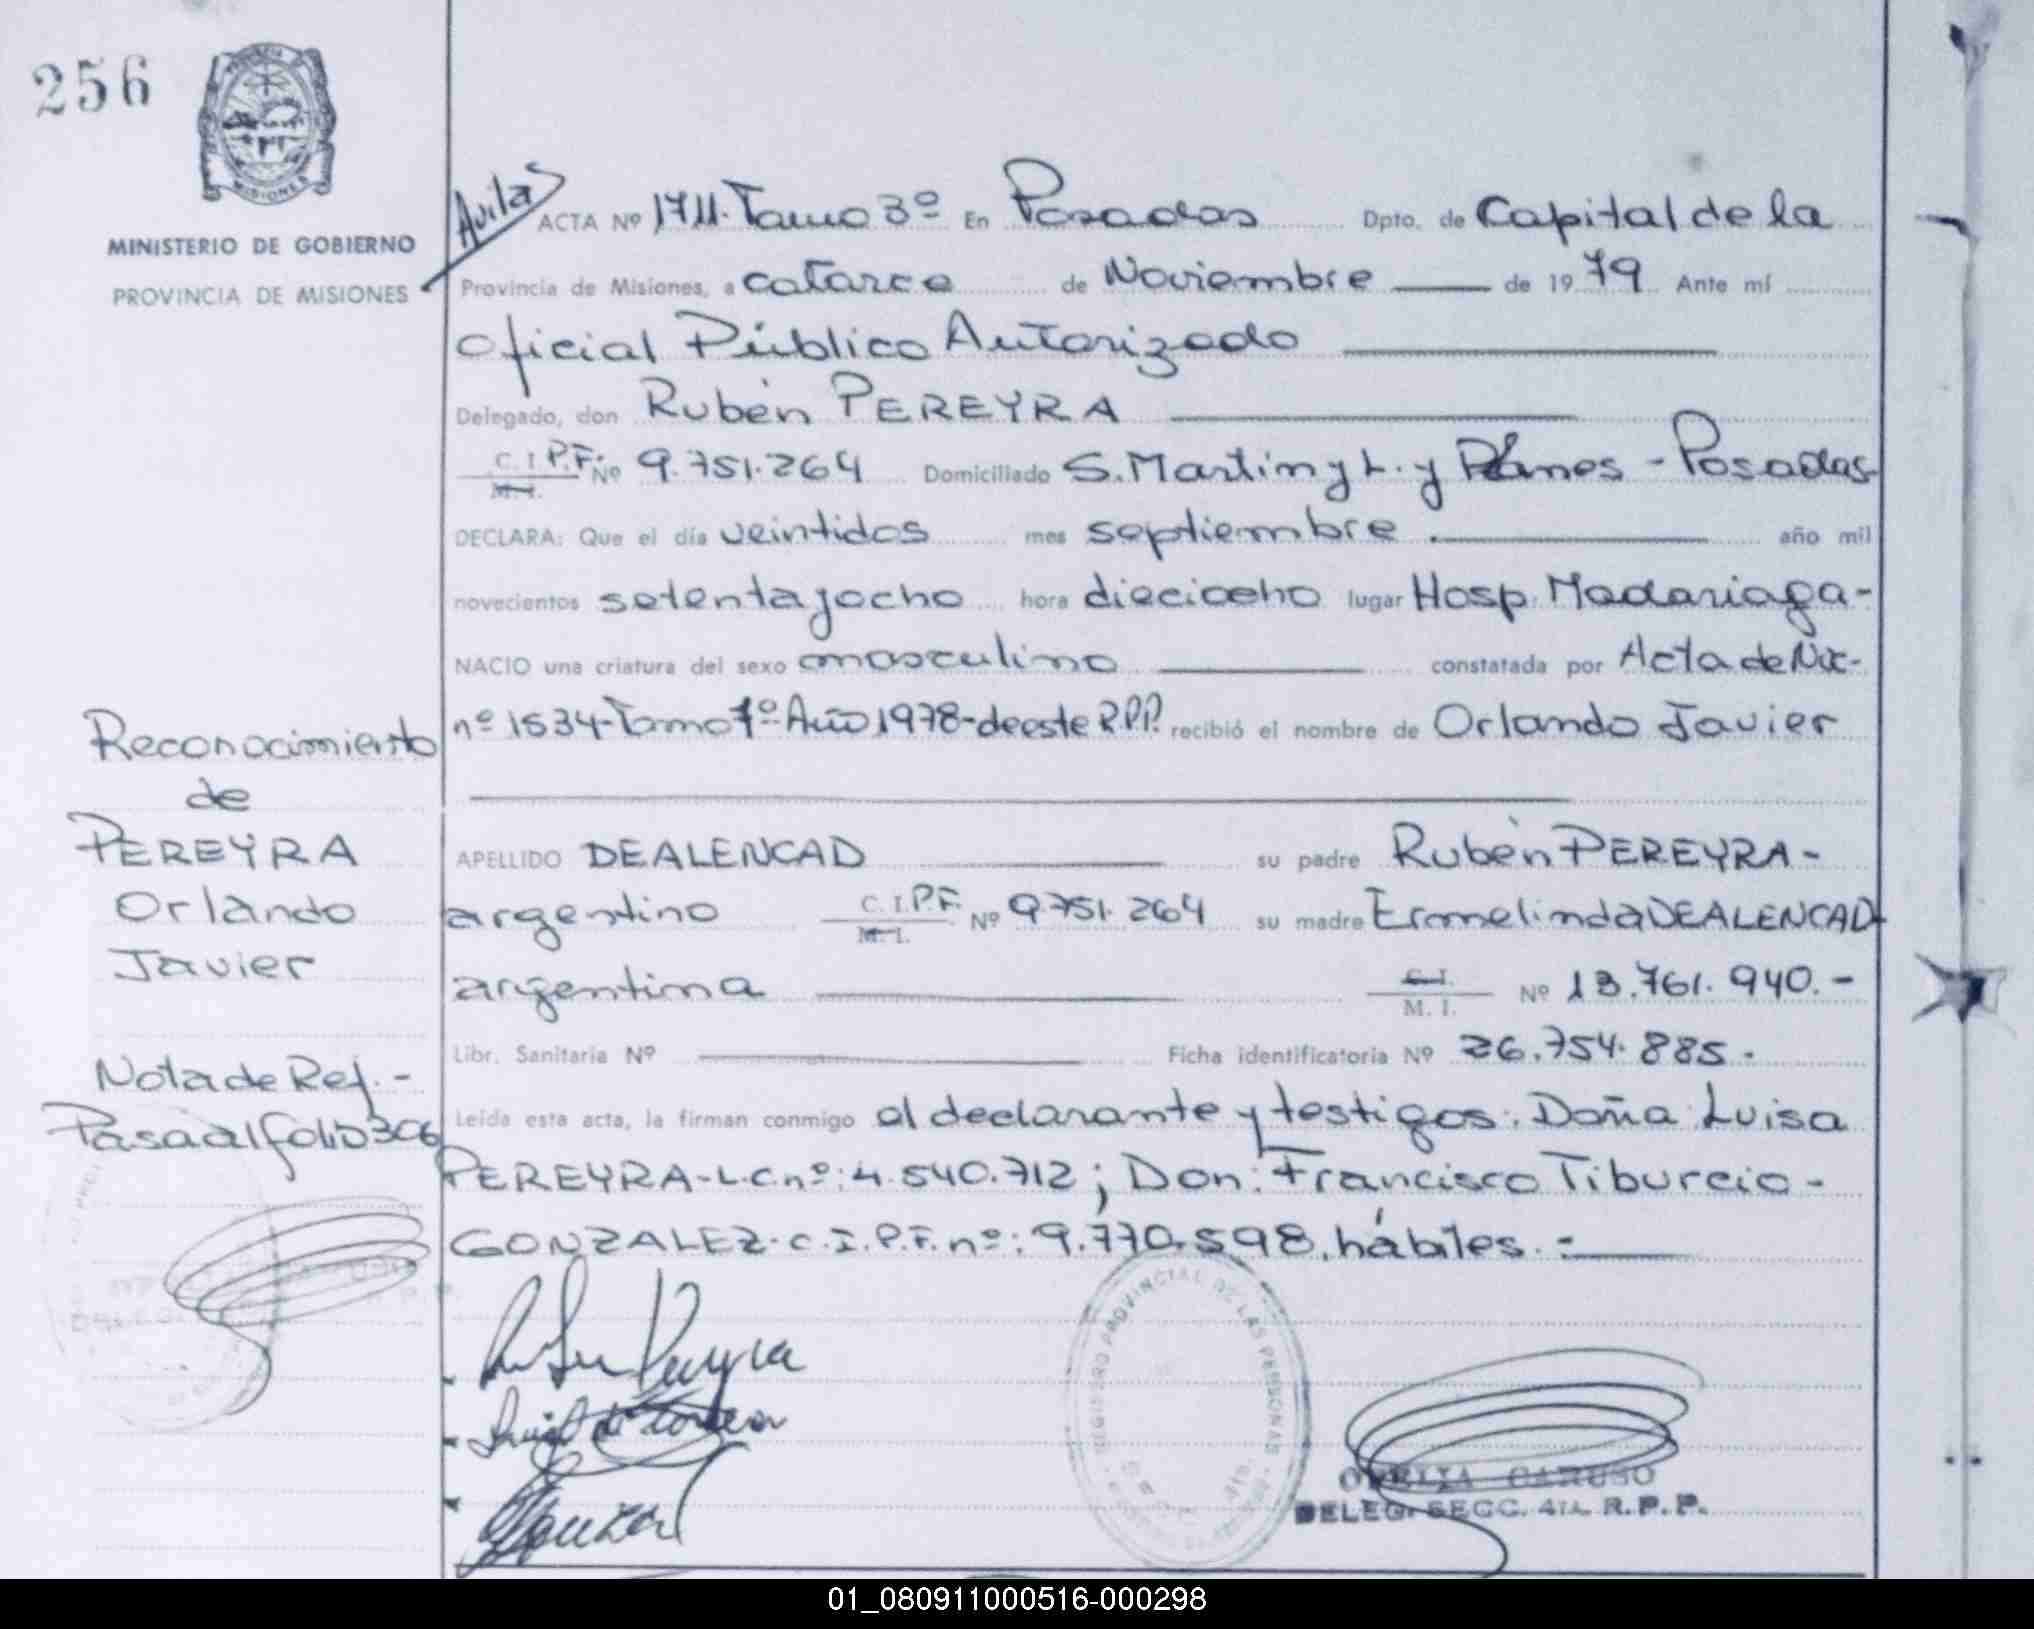 256
PROVINCIA
MISIONES
MINISTERIO DE GOBIERNO
PROVINCIA DE MISIONES
Avila
ACTA Nº 1711. Tomo 3º En Posadas Dpto. de Capital de la
Provincia de Misiones, a catorce de Noviembre de 1979 Ante mí
Oficial Público Autorizado
Delegado, don Rubén PEREYRA
C. I. P.F. Nº 9.751.264 Domiciliado S. Martin y L. y Planes - Posadas
M. I.
DECLARA: Que el día veintidos mes septiembre año mil
novecientos setenta y ocho hora dieciocho lugar Hosp. Madariaga-
NACIO una criatura del sexo masculino constatada por Acta de Nac-
nº 1534-Tomo 1º-Año 1978-de este R.P.P. recibió el nombre de Orlando Javier
APELLIDO DEALENCAD su padre Rubén PEREYRA-
argentino C. I. P.F. Nº 9.751.264 su madre Ermelinda DEALENCAD
M. I.
argentina C. I. Nº 13.761.940.-
M. I.
Libr. Sanitaria Nº Ficha identificatoria Nº 26.754.885.
Leída esta acta, la firman conmigo el declarante y testigos: Doña: Luisa
PEREYRA-L.C.nº: 4.540.712; Don: Francisco Tiburcio-
GONZALEZ-C.I.P.F. nº: 9.770.598, hábiles.-
Reconocimiento
de
PEREYRA
Orlando
Javier
Nota de Ref.-
Pasa al folio 306
REGISTRO PROVINCIAL DE LAS PERSONAS
OFELIA CARUSO
DELEG. SECC. 4ta. R.P.P.
01_080911000516-000298